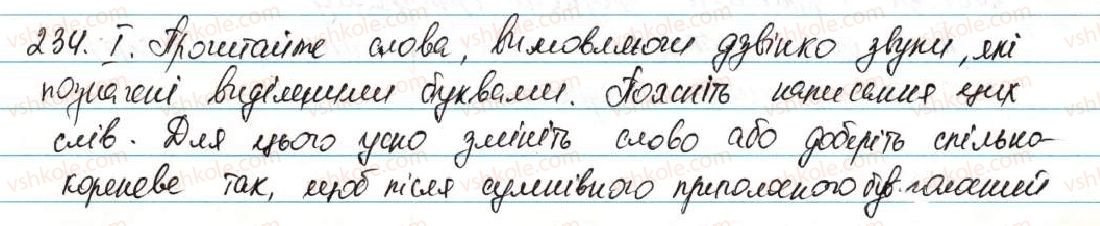 234. I. Прочитайте слова, вимовляючи дзвінко звуки, які
позначені виділеними буквами. Поясніть написання цих
слів. Для цього усно змініть слово або доберіть спільно-
кореневе так, щоб після сумнівного приголосного був голосний